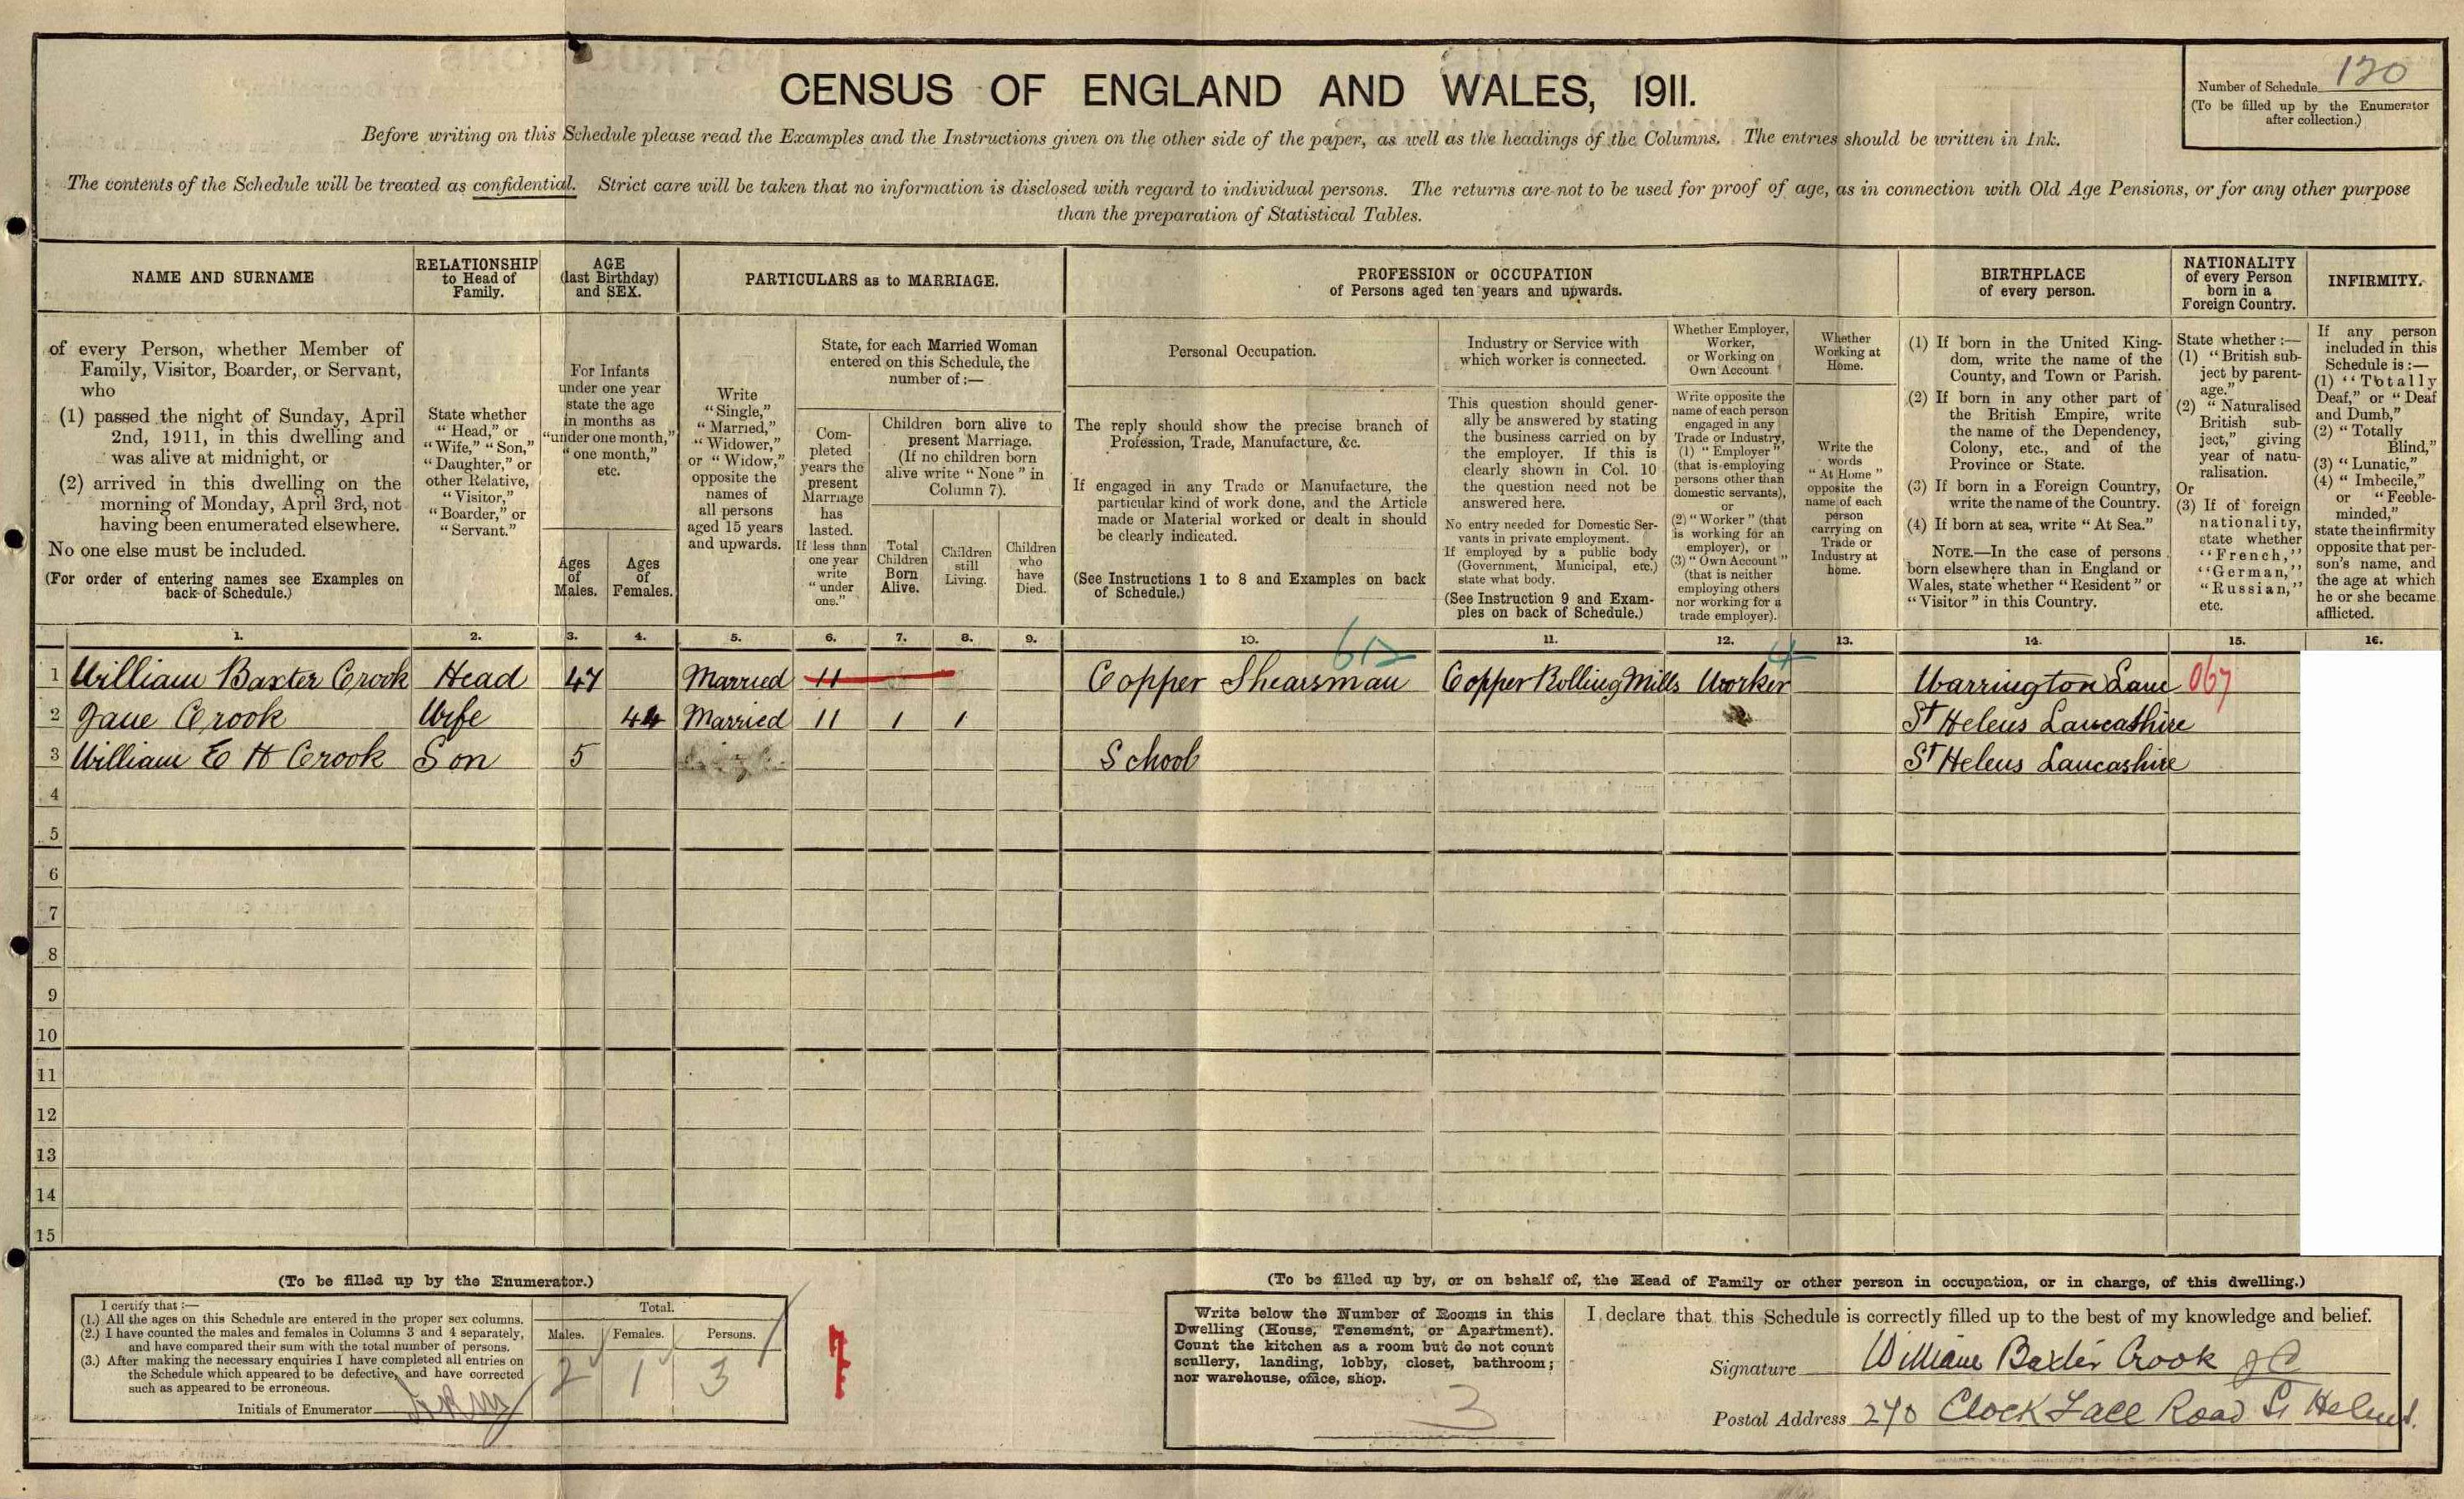 CENSUS OF ENGLAND AND WALES, 1911.
Number of Schedule 120
(To be filled up by the Enumerator
after collection.)
Before writing on this Schedule please read the Examples and the Instructions given on the other side of the paper, as well as the headings of the Columns. The entries should be written in Ink.
The contents of the Schedule will be treated as confidential. Strict care will be taken that no information is disclosed with regard to individual persons. The returns are not to be used for proof of age, as in connection with Old Age Pensions, or for any other purpose
than the preparation of Statistical Tables.
NAME AND SURNAME
of every Person, whether Member of
Family, Visitor, Boarder, or Servant,
who
(1) passed the night of Sunday, April
2nd, 1911, in this dwelling and
was alive at midnight, or
(2) arrived in this dwelling on the
morning of Monday, April 3rd, not
having been enumerated elsewhere.
No one else must be included.
(For order of entering names see Examples on
back of Schedule.)
RELATIONSHIP
to Head of
Family.
State whether
"Head," or
"Wife," "Son,"
"Daughter," or
other Relative,
"Visitor,"
"Boarder," or
"Servant."
AGE
(last Birthday)
and SEX.
For Infants
under one year
state the age
in months as
"under one month,"
"one month,"
etc.
Ages
of
Males.
Ages
of
Females.
PARTICULARS as to MARRIAGE.
Write
"Single,"
"Married,"
"Widower,"
or "Widow,"
opposite the
names of
all persons
aged 15 years
and upwards.
State, for each Married Woman
entered on this Schedule, the
number of :—
Com-
pleted
years the
present
Marriage
has
lasted.
If less than
one year
write
"under
one."
Children born alive to
present Marriage.
(If no children born
alive write "None" in
Column 7).
Total
Children
Born
Alive.
Children
still
Living.
Children
who
have
Died.
PROFESSION or OCCUPATION
of Persons aged ten years and upwards.
Personal Occupation.
The reply should show the precise branch of
Profession, Trade, Manufacture, &c.
If engaged in any Trade or Manufacture, the
particular kind of work done, and the Article
made or Material worked or dealt in should
be clearly indicated.
(See Instructions 1 to 8 and Examples on back
of Schedule.)
Industry or Service with
which worker is connected.
This question should gener-
ally be answered by stating
the business carried on by
the employer. If this is
clearly shown in Col. 10
the question need not be
answered here.
No entry needed for Domestic Ser-
vants in private employment.
If employed by a public body
(Government, Municipal, etc.)
state what body.
(See Instruction 9 and Exam-
ples on back of Schedule.)
Whether Employer,
Worker,
or Working on
Own Account
Write opposite the
name of each person
engaged in any
Trade or Industry,
(1) "Employer"
(that is employing
persons other than
domestic servants),
or
(2) "Worker" (that
is working for an
employer), or
(3) "Own Account"
(that is neither
employing others
nor working for a
trade employer).
Whether
Working at
Home.
Write the
words
"At Home"
opposite the
name of each
person
carrying on
Trade or
Industry at
home.
BIRTHPLACE
of every person.
(1) If born in the United King-
dom, write the name of the
County, and Town or Parish.
(2) If born in any other part of
the British Empire, write
the name of the Dependency,
Colony, etc., and of the
Province or State.
(3) If born in a Foreign Country,
write the name of the Country.
(4) If born at sea, write "At Sea."
NOTE.—In the case of persons
born elsewhere than in England or
Wales, state whether "Resident" or
"Visitor" in this Country.
NATIONALITY
of every Person
born in a
Foreign Country.
State whether :—
(1) "British sub-
ject by parent-
age."
(2) "Naturalised
British sub-
ject," giving
year of natu-
ralisation.
Or
(3) If of foreign
nationality,
state whether
"French,"
"German,"
"Russian,"
etc.
INFIRMITY.
If any person
included in this
Schedule is :—
(1) "Totally
Deaf," or "Deaf
and Dumb,"
(2) "Totally
Blind,"
(3) "Lunatic,"
(4) "Imbecile,"
or "Feeble-
minded,"
state the infirmity
opposite that per-
son's name, and
the age at which
he or she became
afflicted.
1. 2. 3. 4. 5. 6. 7. 8. 9. 10. 11. 12. 13. 14. 15. 16.
612 4
1 William Baxter Crook Head 47 Married 11 Copper Shearsman Copper Rolling Mills Worker Warrington Lanc 067
2 Jane Crook Wife 44 Married 11 1 1 St Helens Lancashire
3 William E H Crook Son 5 School St Helens Lancashire
4
5
6
7
8
9
10
11
12
13
14
15
(To be filled up by the Enumerator.)
I certify that :—
(1.) All the ages on this Schedule are entered in the proper sex columns.
(2.) I have counted the males and females in Columns 3 and 4 separately,
and have compared their sum with the total number of persons.
(3.) After making the necessary enquiries I have completed all entries on
the Schedule which appeared to be defective, and have corrected
such as appeared to be erroneous.
Initials of Enumerator
Total.
Males. Females. Persons.
2 1 3
(To be filled up by, or on behalf of, the Head of Family or other person in occupation, or in charge, of this dwelling.)
Write below the Number of Rooms in this
Dwelling (House, Tenement, or Apartment).
Count the kitchen as a room but do not count
scullery, landing, lobby, closet, bathroom;
nor warehouse, office, shop.
3
I declare that this Schedule is correctly filled up to the best of my knowledge and belief.
Signature William Baxter Crook JC
Postal Address 270 Clock Face Road St Helens.